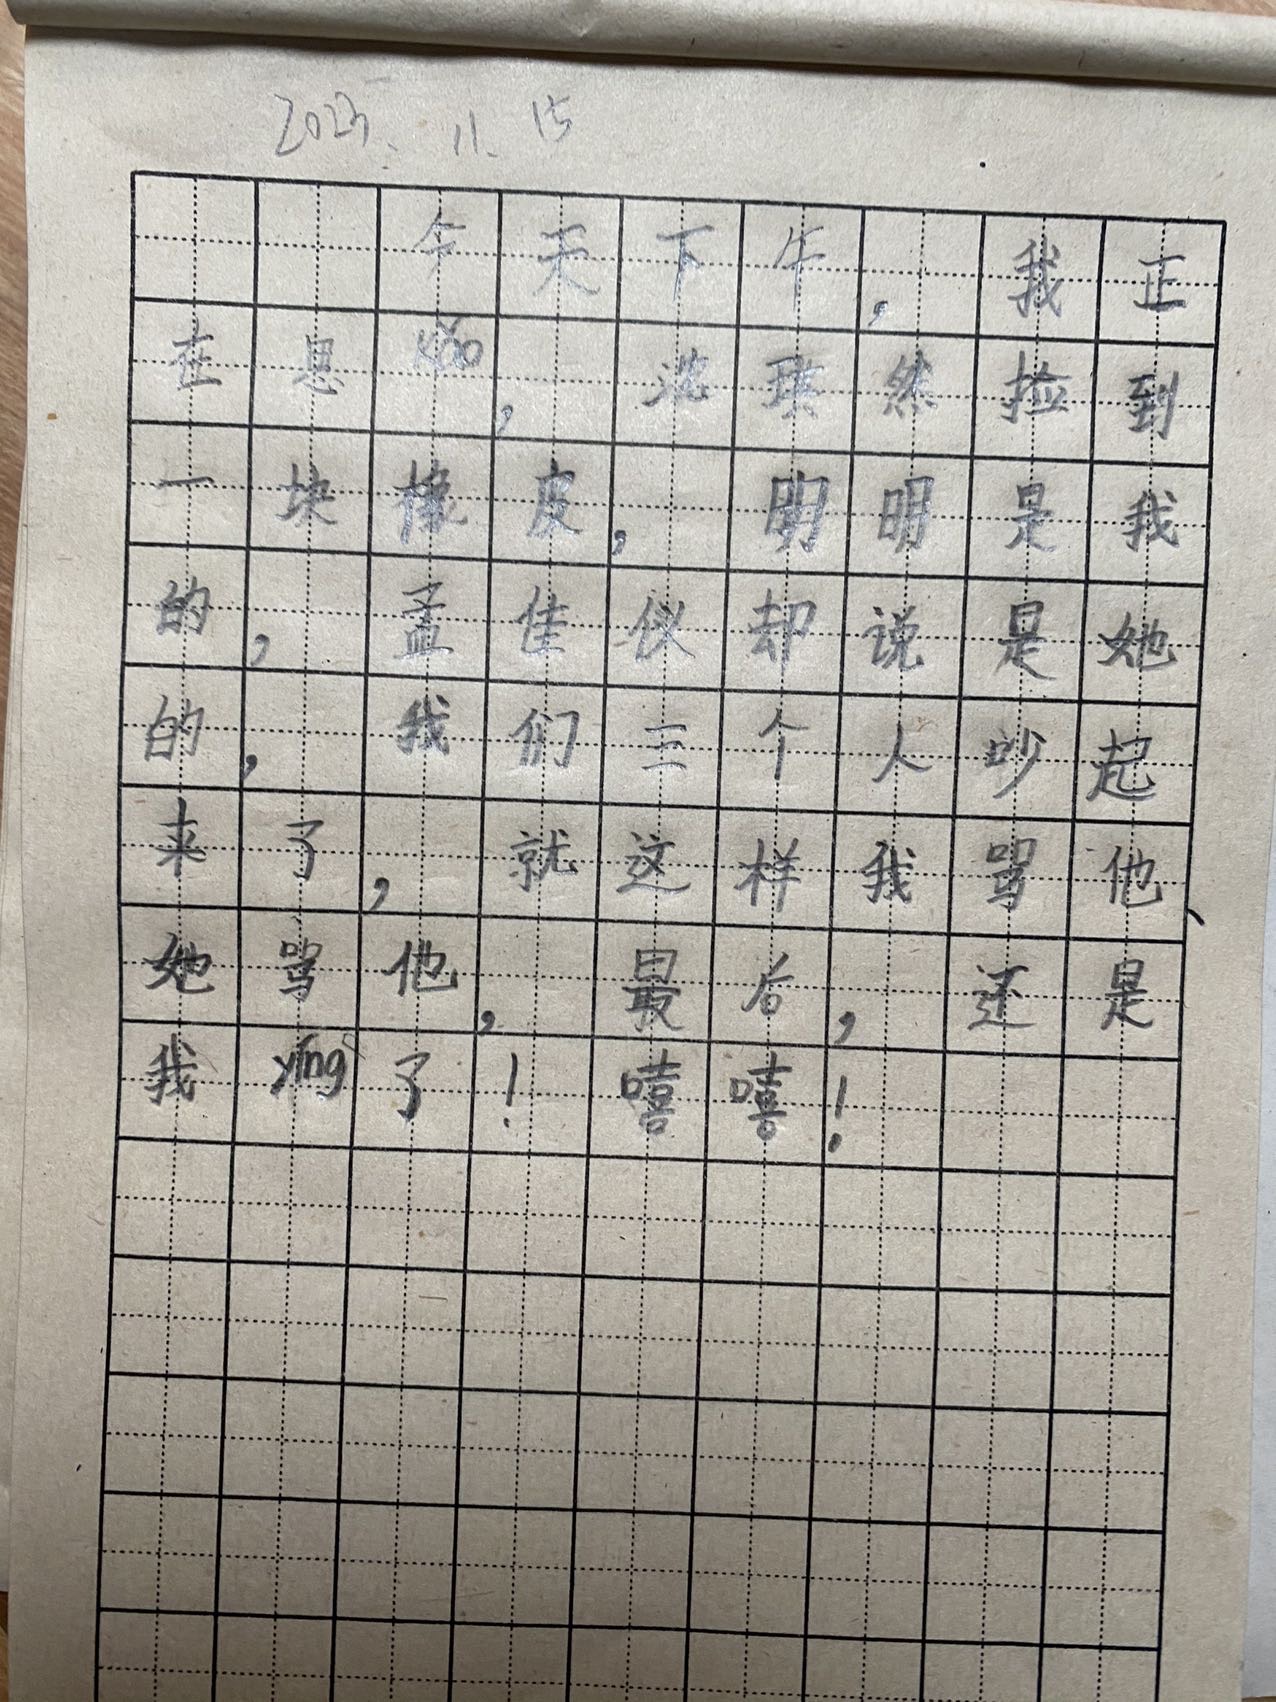 2023. 11. 15
今天下午,我正
在思kǎo,沈琪然捡到
一块橡皮,明明是我
的,孟佳仪却说是她
的,我们三个人吵起
来了,就这样我骂他、
她骂他,最后,还是
我yíng了!嘻嘻!